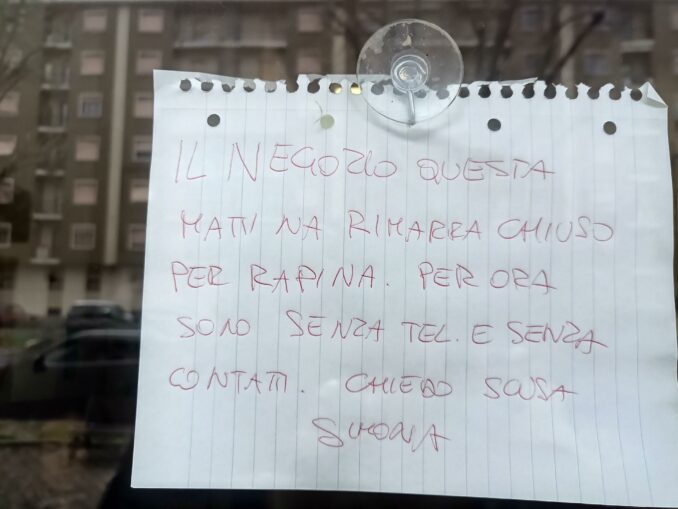 IL NEGOZIO QUESTA
MATTINA RIMARRA CHIUSO
PER RAPINA. PER ORA
SONO SENZA TEL. E SENZA
CONTATTI. CHIEDO SCUSA
SIMONA